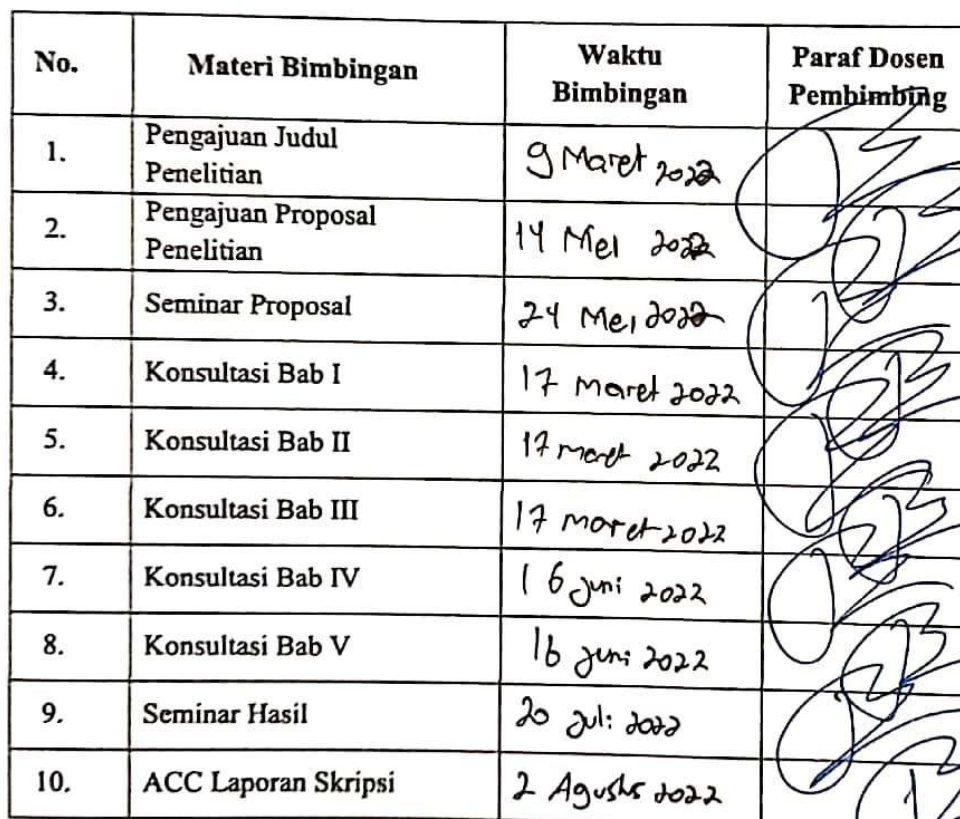 No. Materi Bimbingan Waktu Bimbingan Paraf Dosen Pembimbing
1. Pengajuan Judul Penelitian 9 Maret 2022
2. Pengajuan Proposal Penelitian 14 Mei 2022
3. Seminar Proposal 24 Mei 2022
4. Konsultasi Bab I 17 Maret 2022
5. Konsultasi Bab II 17 maret 2022
6. Konsultasi Bab III 17 maret 2022
7. Konsultasi Bab IV 16 juni 2022
8. Konsultasi Bab V 16 juni 2022
9. Seminar Hasil 20 Juli 2022
10. ACC Laporan Skripsi 2 Agustus 2022